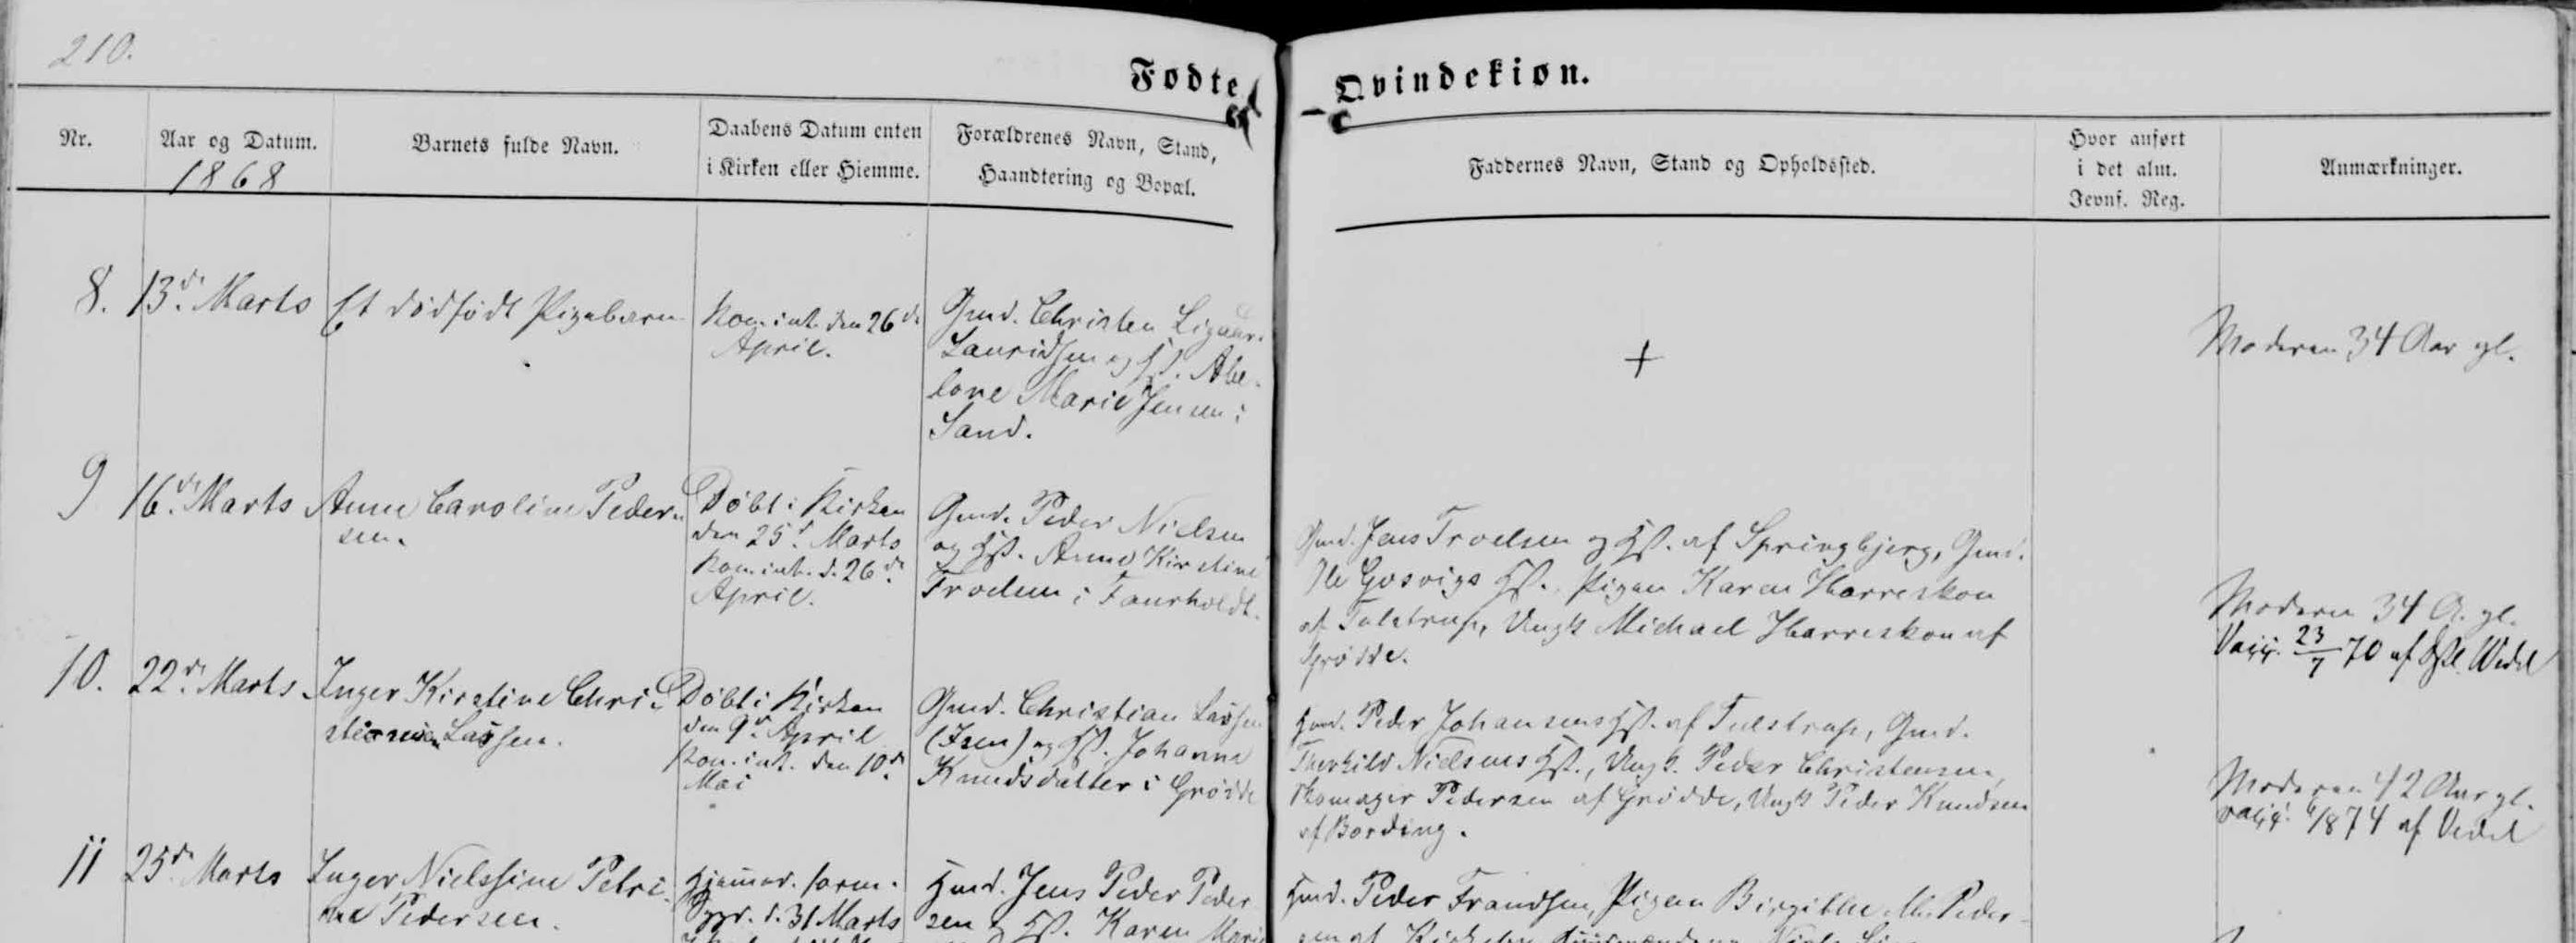 210.
Fødte Qvindekiøn.
Nr.
Aar og Datum.
1868
Barnets fulde Navn.
Daabens Datum enten
i Kirken eller Hiemme.
Forældrenes Navn, Stand,
Haandtering og Bopæl.
Faddernes Navn, Stand og Opholdssted.
Hvor anført
i det alm.
Jevnf. Reg.
Anmærkninger.
8.
13d. Marts
Et dødfødt Pigebarn
Kom. int. den 26d.
April.
Gmd. Christen
Lauridsen og Hst. Abe-
lone Marie Jensen i
Sand.
+
Moderen 34 Aar gl.
9
16d. Marts
Anne Caroline Peder-
sen.
Døbt i Kirken
den 25d. Marts
Kom. int. d. 26d.
April.
Gmd. Peder Nielsen
og Hst. Anne Kirstine
Troelsen i Faurholdt.
Gmd. Jens Troelsen og Hst. af Springbjerg, Gmd.
Hst., Pigen Karen Harreskou
af Tulstrup, Ungk Michael Harreskou af
Grødde.
Moderen 34 A. gl.
Vacc. 23/7 70 af Wedel
10.
22d. Marts
Inger Kirstine Chri-
Lassen.
Døbt i Kirken
den 9d. April
Kom. int. den 10d.
Mai
Gmd. Christian Lassen
(Isen) og Hst. Johanne
Knudsdatter i Grødde
Hmd. Peder Johansens Hst. af Tulstrup, Gmd.
Therkild Nielsens Hst., Ungk. Peder Christensen,
Skomager Pedersen af Grødde, Ungk Peder Knudsen
af Bording.
Moderen 42 Aar gl.
vacc. 74 af Vedel
11
25d. Marts
Inger Nielssine Petri-
ne Pedersen.
Hjemmed.
d. 31 Marts
Hmd. Jens Peder Peder
sen og Hst. Karen Marie
Hmd. Peder Frandsen, Pigen Birgitte M. Peder-
sen af